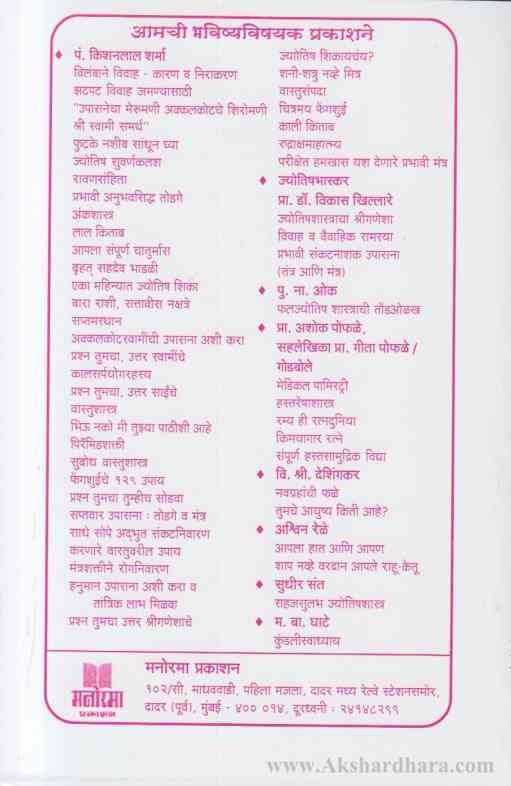 आमची भविष्यविषयक प्रकाशने
♦ पं. किशनलाल शर्मा
विलंबाने विवाह - कारण व निराकरण
झटपट विवाह जमण्यासाठी
"उपासनेचा मेरूमणी अक्कलकोटचे शिरोमणी
श्री स्वामी समर्थ"
फुटके नशीब सांधून घ्या
ज्योतिष सुवर्णकलश
रावणसंहिता
प्रभावी अनुभवसिद्ध तोडगे
अंकशास्त्र
लाल किताब
आपला संपूर्ण चातुर्मास
बृहत् सहदेव भाडळी
एका महिन्यात ज्योतिष शिका
बारा राशी, सत्तावीस नक्षत्रे
सप्तमस्थान
अक्कलकोटस्वामींची उपासना अशी करा
प्रश्न तुमचा, उत्तर स्वामींचे
कालसर्पयोगरहस्य
प्रश्न तुमचा, उत्तर साईंचे
वास्तुशास्त्र
भिऊ नको मी तुझ्या पाठीशी आहे
पिरॅमिडशक्ती
सुबोध वास्तुशास्त्र
फेंगशुईचे १२९ उपाय
प्रश्न तुमचा तुम्हीच सोडवा
सप्तवार उपासना : तोडगे व मंत्र
साधे सोपे अद्‌भुत संकटनिवारण
करणारे वास्तुवरील उपाय
मंत्रशक्तीने रोगनिवारण
हनुमान उपासना अशी करा व
तांत्रिक लाभ मिळवा
प्रश्न तुमचा उत्तर श्रीगणेशाचे
ज्योतिष शिकायचंय?
शनी-शत्रु नव्हे मित्र
वास्तुसंपदा
चित्रमय फेंगशुई
काली किताब
रुद्राक्षमाहात्म्य
परीक्षेत हमखास यश देणारे प्रभावी मंत्र
♦ ज्योतिषभास्कर
प्रा. डॉ. विकास खिल्लारे
ज्योतिषशास्त्राचा श्रीगणेशा
विवाह व वैवाहिक समस्या
प्रभावी संकटनाशक उपासना
(तंत्र आणि मंत्र)
♦ पु. ना. ओक
फलज्योतिष शास्त्राची तोंडओळख
♦ प्रा. अशोक पोफळे,
सहलेखिका प्रा. गीता पोफळे /
गोडबोले
मेडिकल पामिस्ट्री
हस्तरेषाशास्त्र
रम्य ही रत्नदुनिया
किमयागार रत्ने
संपूर्ण हस्तसामुद्रिक विद्या
♦ वि. श्री. देशिंगकर
नवग्रहांची फळे
तुमचे आयुष्य किती आहे?
♦ अश्विन रेळे
आपला हात आणि आपण
शाप नव्हे वरदान आपले राहू-केतू
♦ सुधीर संत
सहजसुलभ ज्योतिषशास्त्र
♦ म. बा. घाटे
कुंडलीस्वाध्याय
मनोरमा
प्रकाशन
मनोरमा प्रकाशन
१०२/सी, माधववाडी, पहिला मजला, दादर मध्य रेल्वे स्टेशनसमोर,
दादर (पूर्व), मुंबई - ४०० ०१४. दूरध्वनी : २४१४८२९९
www.Akshardhara.com